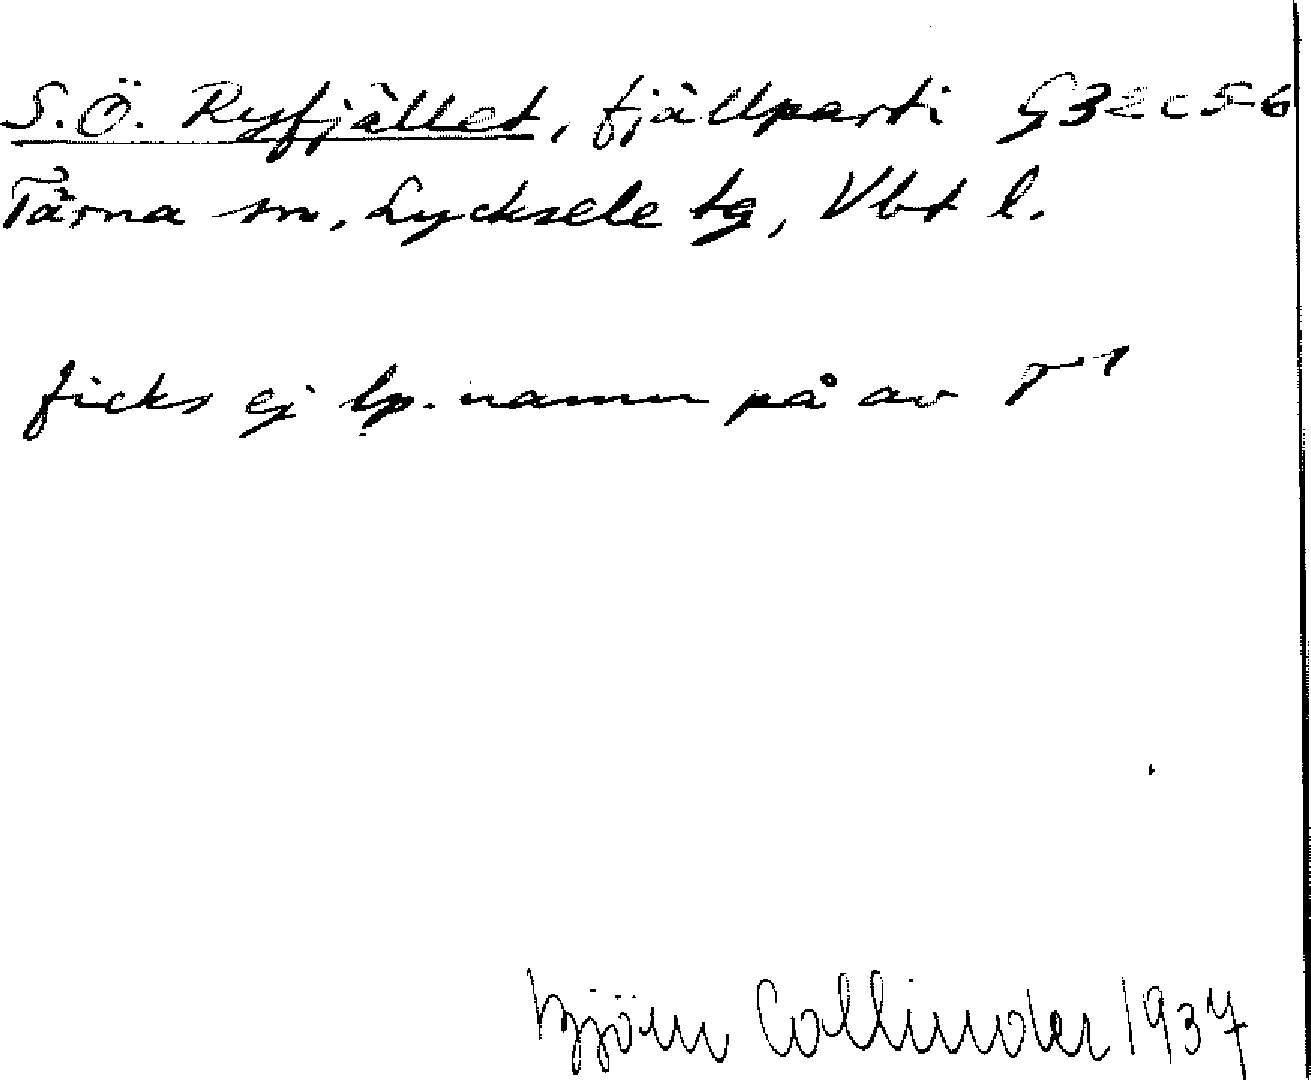 S.Ö. Ryfjället, fjällparti G32c5-6
Tärna sn, Lycksele tg, Vbt l.
ficks ej lp. namn på av T¹
Björn Collinder 1937